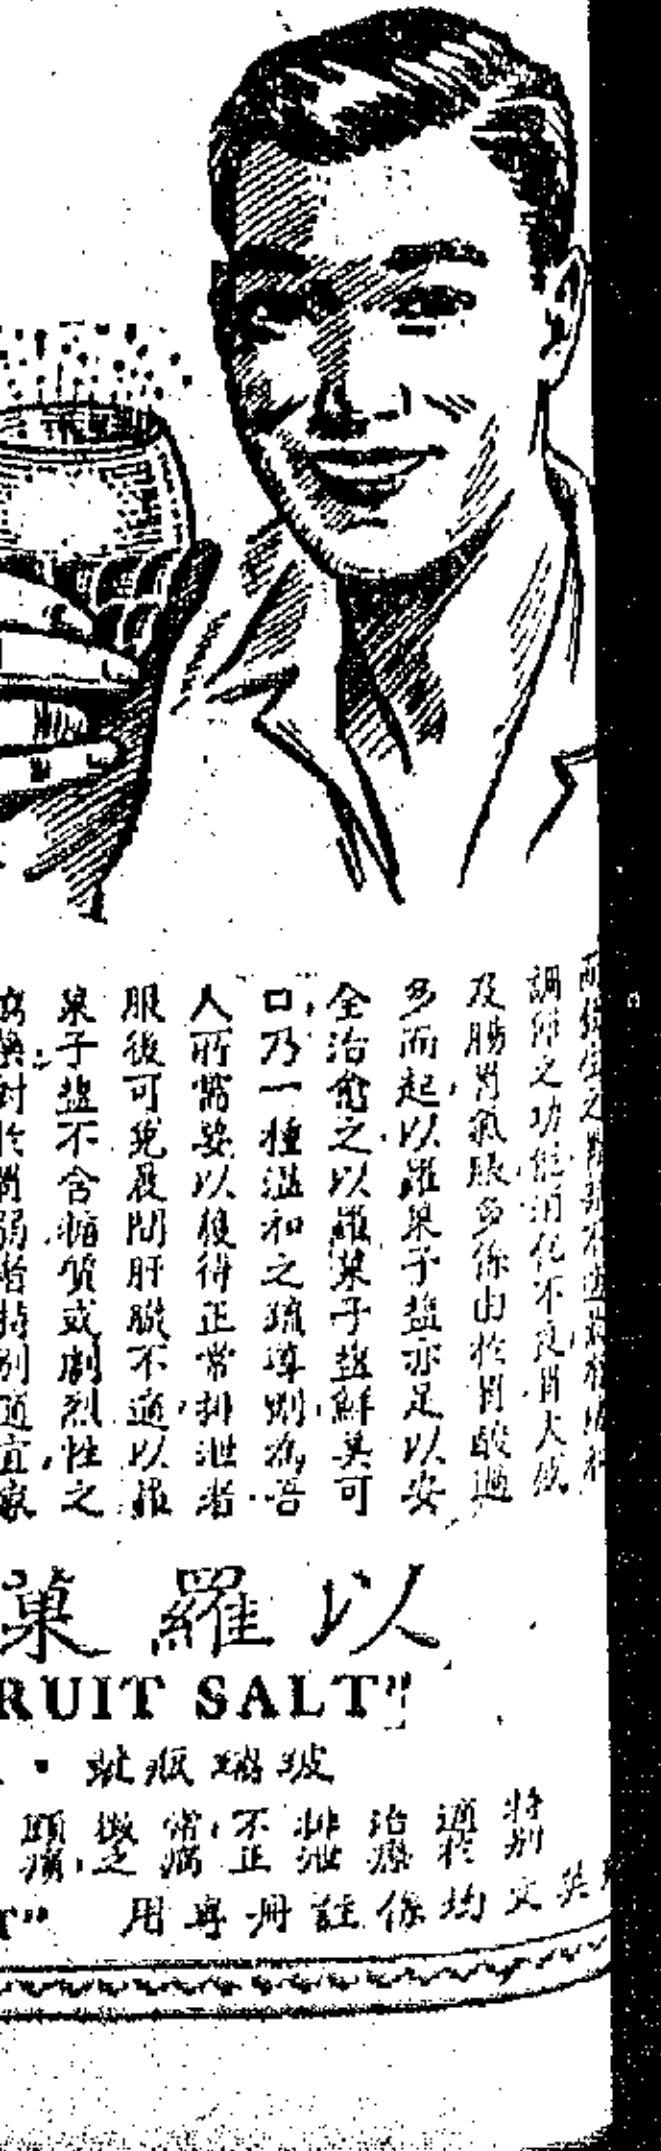 調節之功能消化不良胃大減
及腸胃氣脹多係由於胃酸過
多而起以羅菓子盐亦足以安
全治愈之以羅菓子盐鮮美可
口乃一種溫和之疏導劑為吾
人所需要以獲得正常排泄者
服後可免晨間肝臟不適以羅
菓子盐不含糖質或劇烈性之
對於胃弱者特別適宜
以羅菓
RUIT SALT"
玻璃瓶裝 ·
特別
適於
治療
排泄
不正
常病
微之
頭痛
英文均係註册專用
T"